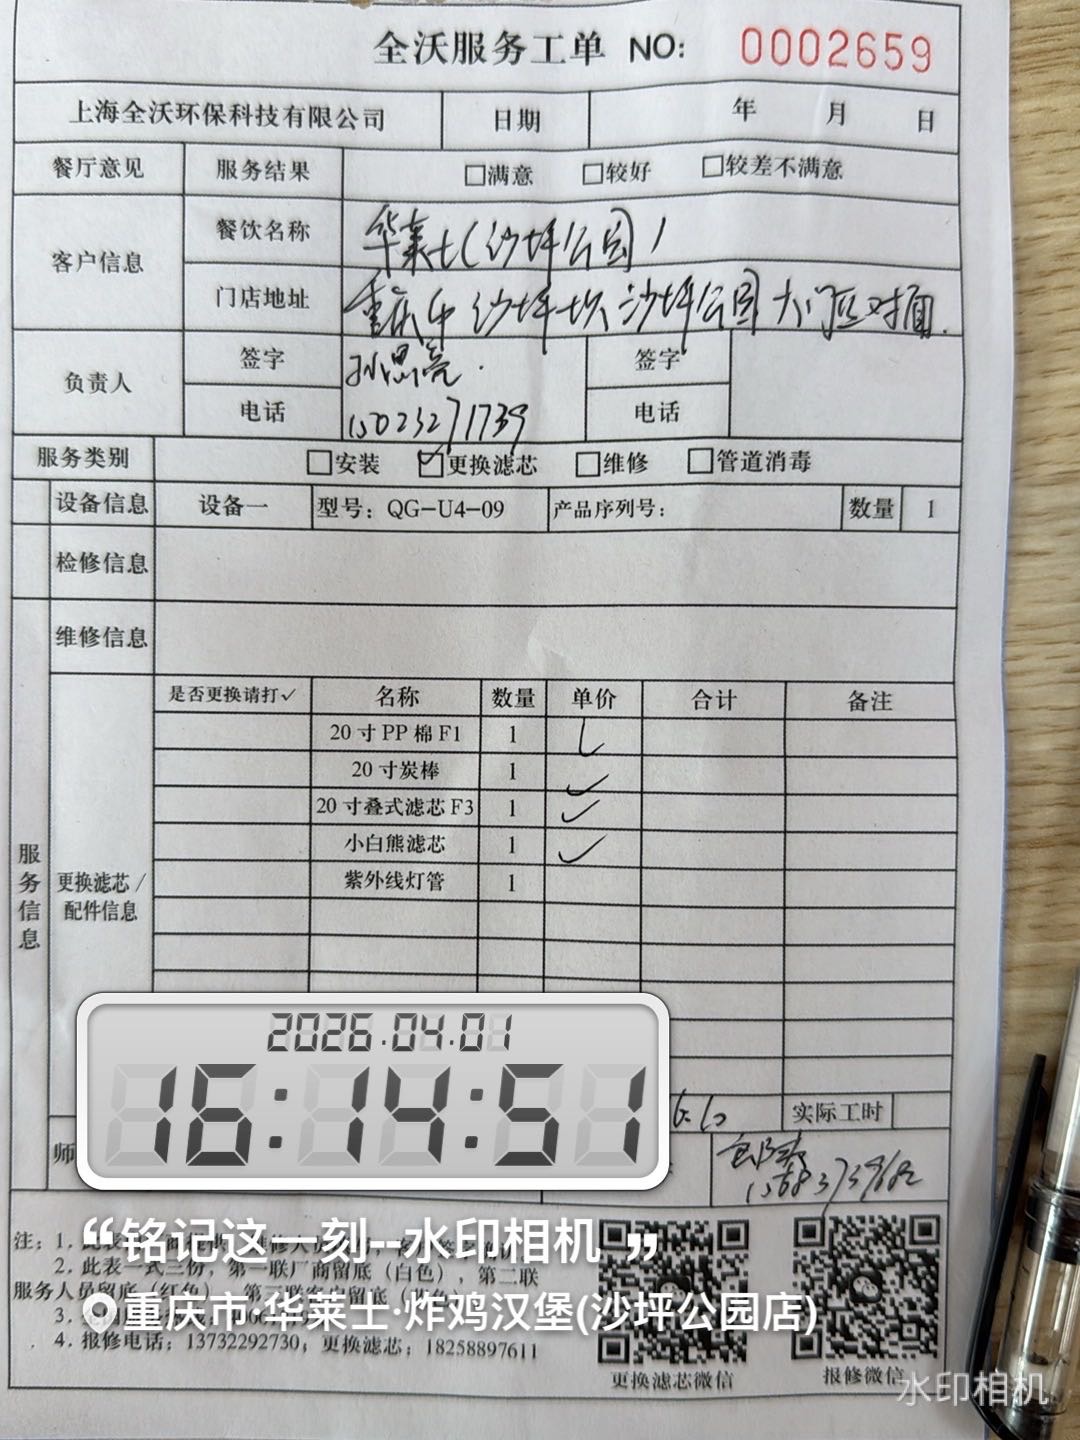 全沃服务工单 NO: 0002659
上海全沃环保科技有限公司 日期 年 月 日
餐厅意见 服务结果 □满意 □较好 □较差不满意
客户信息 餐饮名称 华莱士(沙坪公园)
门店地址 重庆市沙坪坝沙坪公园大门正对面.
负责人 签字 孙思亮. 签字
电话 15023271739 电话
服务类别 □安装 ☑更换滤芯 □维修 □管道消毒
设备信息 设备一 型号: QG-U4-09 产品序列号: 数量 1
检修信息
维修信息
服务信息
更换滤芯/配件信息
是否更换请打✓ 名称 数量 单价 合计 备注
20寸PP棉F1 1 ✓
20寸炭棒 1 ✓
20寸叠式滤芯F3 1 ✓
小白熊滤芯 1 ✓
紫外线灯管 1
2026.04.01
16:14:51
实际工时
师
“铭记这一刻--水印相机”
注: 1. 此表
2. 此表一式三份, 第一联厂商留底 (白色), 第二联
服务人员留底 (红色),
重庆市·华莱士·炸鸡汉堡(沙坪公园店)
3.
4. 报修电话: 13732292730; 更换滤芯: 18258897611
更换滤芯微信
报修微信
水印相机